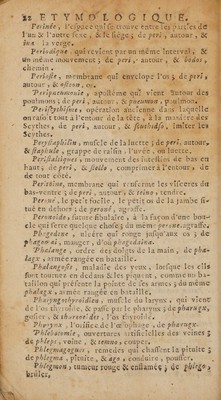 22 ETYMOLOGIQUE.
Perinée, l'espace qui se trouve entre les parties de
l'un & l'autre sexe, & le siége; de peri, autour, &
inn la verge.
Periodique, qui revient par un même interval, &
un même mouvement; de peri, autour, & hodos,
chemin.
Perioste, membrane qui envelope l'os; de peri,
autour, & osteon, os.
Peripneumonie, apostême qui vient autour des
poulmons; de peri, autour, & pneumon, poulmon.
Periscythisme, opération ancienne dans laquelle
on rasoit tout à l'entour de la tête, à la maniere des
Scythes, de peri, autour, & scuthisdo, imiter les
Scythes.
Perystaphilin, muscle de la luette; de peri, autour,
& staphule, grappe de raisin, l'uvée, ou luette.
Peristaltiques, mouvement des intestins de bas en
haut; de peri, & stello, comprimer à l'entour, de
de tout côté.
Peritoine, membrane qui renferme les visceres du
bas-ventre; de peri, autour, & teino, tendre,
Peroné, le petit focile, le petit os de la jambe si-
tué en dehors; de peronê, agraffe.
Peronoide, suture fibulaire, à la façon d'une bou-
cle qui serre quelque chose; du même peronê, agraffe.
Phagedene, ulcére qui ronge jusqu'aux os; de
phagomai, manger, d'où phagedaina.
Phalange, ordre des doigts de la main; de pha-
lagx, armée rangée en bataille.
Phalangosis, maladie des yeux, lorsque les cils
sont tournez en dedans & les piquent, comme un ba-
taillon qui présente la pointe de ses armes; du même
phalagx, armée rangée en bataille.
Pharyngothyroïdien, muscle du larynx, qui vient
de l'os thyroïde, & passe par le pharynx; de pharugx,
gosier, & thureoeides, l'os thyroïde.
Pharynx, l'orifice de l'œsophage, de pharugx.
Phlebotomie, ouvertures artificielles des veines;
de phleps, veine, & temno, couper.
Phlegmagogues, remedes qui chassent la pituite;
de phlegma, pituite, & ago, conduire, pousser.
Phlegmon, tumeur rouge & enflamée; de phlego,
brûler,